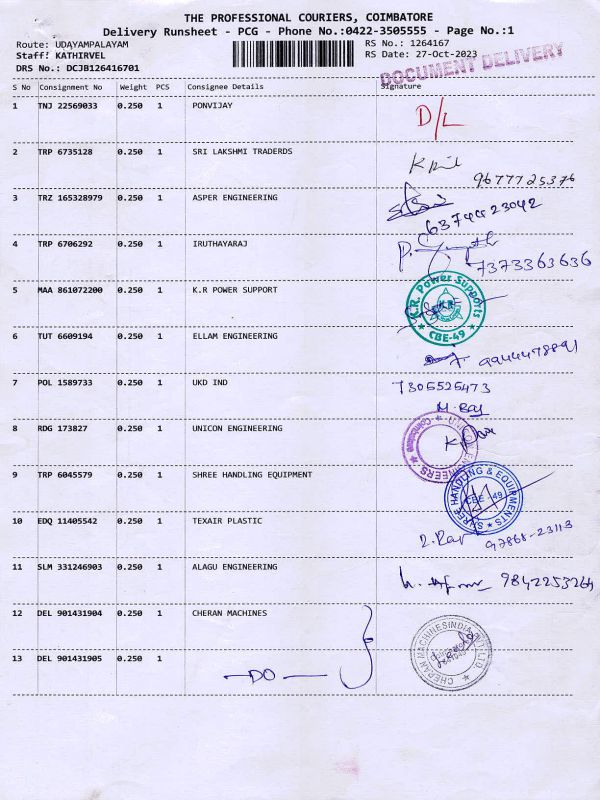 THE PROFESSIONAL COURIERS, COIMBATORE
Delivery Runsheet - PCG - Phone No.:0422-3505555 - Page No.:1
Route: UDAYAMPALAYAM RS No.: 1264167
Staff: KATHIRVEL RS Date: 27-Oct-2023
DRS No.: DCJB126416701
DOCUMENT DELIVERY
S No Consignment No Weight PCS Consignee Details Signature
1 TNJ 22569033 0.250 1 PONVIJAY D/L
2 TRP 6735128 0.250 1 SRI LAKSHMI TRADERDS
9677725376
3 TRZ 165328979 0.250 1 ASPER ENGINEERING
6374423042
4 TRP 6706292 0.250 1 IRUTHAYARAJ
7373363636
5 MAA 861072200 0.250 1 K.R POWER SUPPORT
K.R. Power Supports CBE-49
6 TUT 6609194 0.250 1 ELLAM ENGINEERING
9944478891
7 POL 1589733 0.250 1 UKD IND 7305525473
M. Raj
8 RDG 173827 0.250 1 UNICON ENGINEERING
9 TRP 6045579 0.250 1 SHREE HANDLING EQUIPMENT
SHREE HANDLING & EQUIPMENTS CBE - 49
10 EDQ 11405542 0.250 1 TEXAIR PLASTIC
97868-23113
11 SLM 331246903 0.250 1 ALAGU ENGINEERING
9842253264
12 DEL 901431904 0.250 1 CHERAN MACHINES
CHERAN MACHINES INDIA PVT LTD
13 DEL 901431905 0.250 1
—DO—